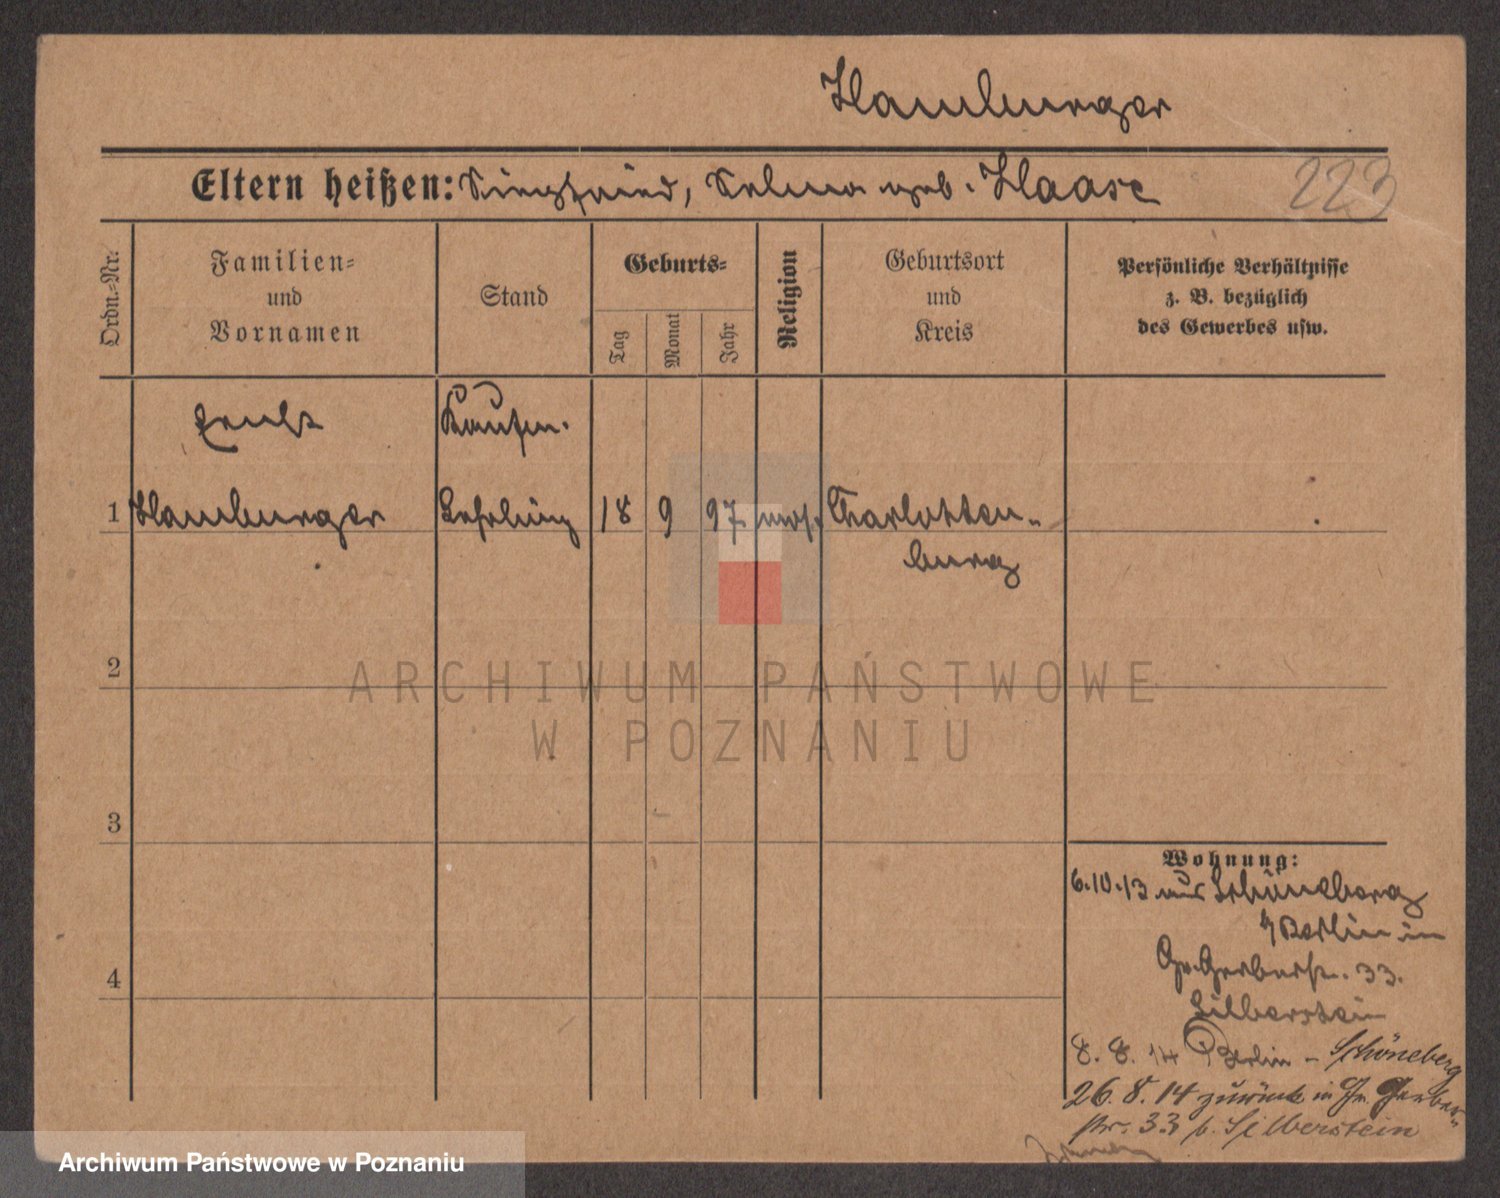 Hamburger
Eltern heißen: Siegfried, Selma geb. Haase
223
Ordn.-Nr.
Familien-
und
Vornamen
Stand
Geburts-
Tag
Monat
Jahr
Religion
Geburtsort
und
Kreis
Persönliche Verhältnisse
z. B. bezüglich
des Gewerbes usw.
Ernst
Kaufm.
1 Hamburger Lehrling 18 9 97 mos. Charlotten-
burg
2
ARCHIWUM PAŃSTWOWE
W POZNANIU
3
Wohnung:
6.10.13 aus Schöneberg
b/Berlin in
Gr. Gerberstr. 33.
Silberstein
4
8. 8. 14 Berlin - Schöneberg
26. 8. 14 zurück in Gr. Gerber-
str. 33 b. Silberstein
Archiwum Państwowe w Poznaniu